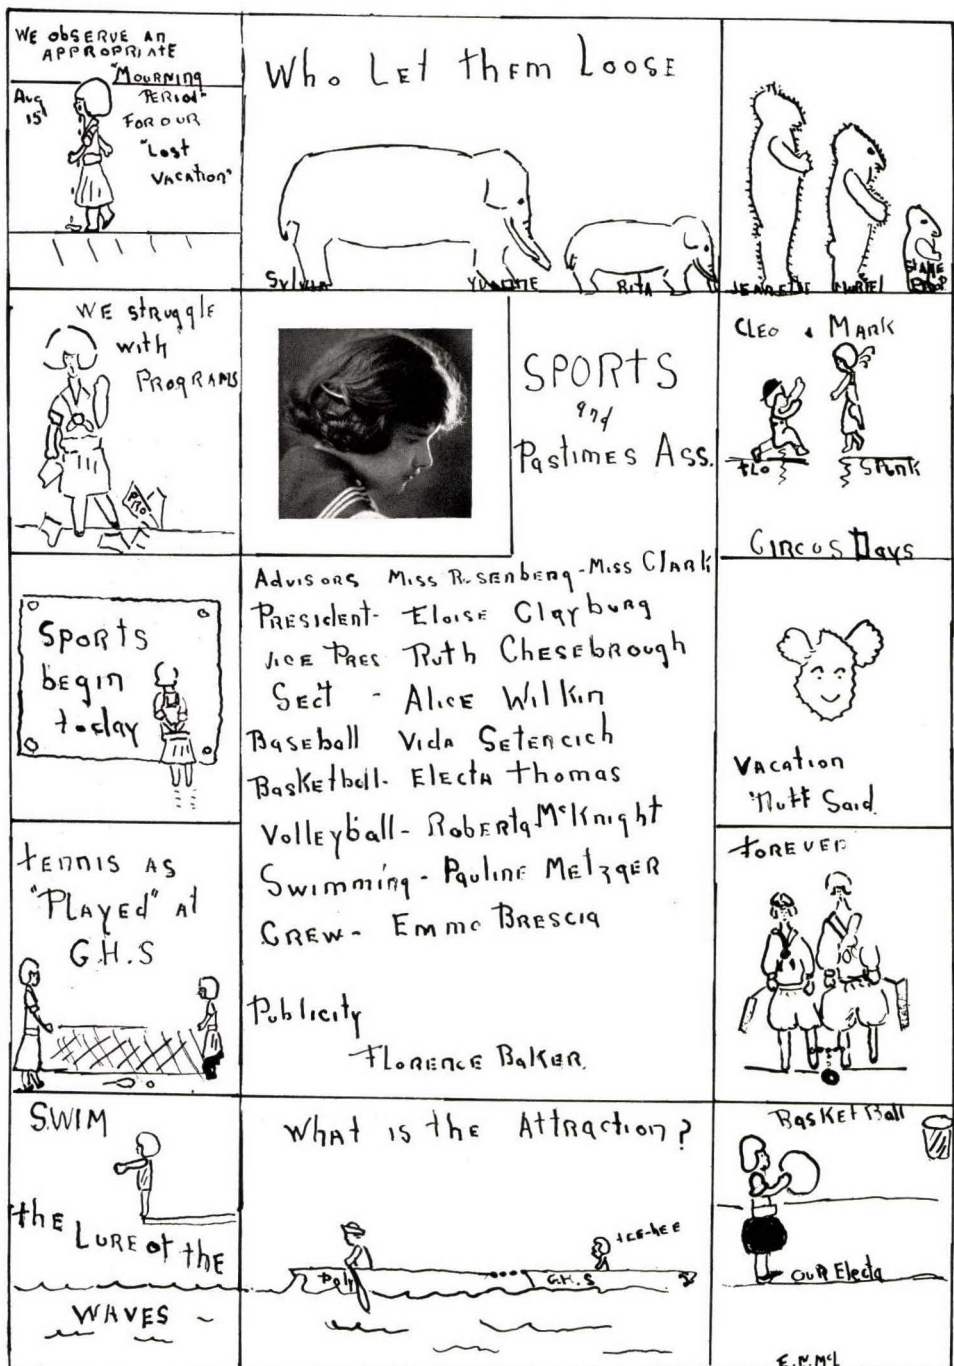 WE OBSERVE AN
APPROPRIATE
"MOURNING
PERIOD"
FOR OUR
"LOST
VACATION"
Aug
15
WHO LET THEM LOOSE
SYLVIA YVONNE RITA
JEANETTE MURIEL
WE STRUGGLE
WITH
PROGRAMS
PRO
SPORTS
and
PASTIMES ASS.
CLEO & MARK
FLO SPANK
CIRCUS DAYS
SPORTS
begin
today
ADVISORS MISS ROSENBERG - MISS CLARK
PRESIDENT - ELOISE CLAYBURG
VICE PRES RUTH CHESEBROUGH
SECT - ALICE WILKIN
BASEBALL VIDA SETENCICH
BASKETBALL - ELECTA THOMAS
VOLLEYBALL - ROBERTA McKNIGHT
SWIMMING - PAULINE METZGER
CREW - EMMA BRESCIA
PUBLICITY
FLORENCE BAKER.
VACATION
'NUFF SAID.
TENNIS AS
"PLAYED" AT
G.H.S
FOREVER
SWIM
THE LURE OF THE
WAVES
WHAT IS THE ATTRACTION?
TEE-HEE
POLY G.H.S
BASKET BALL
OUR ELECTA
E.N.McL